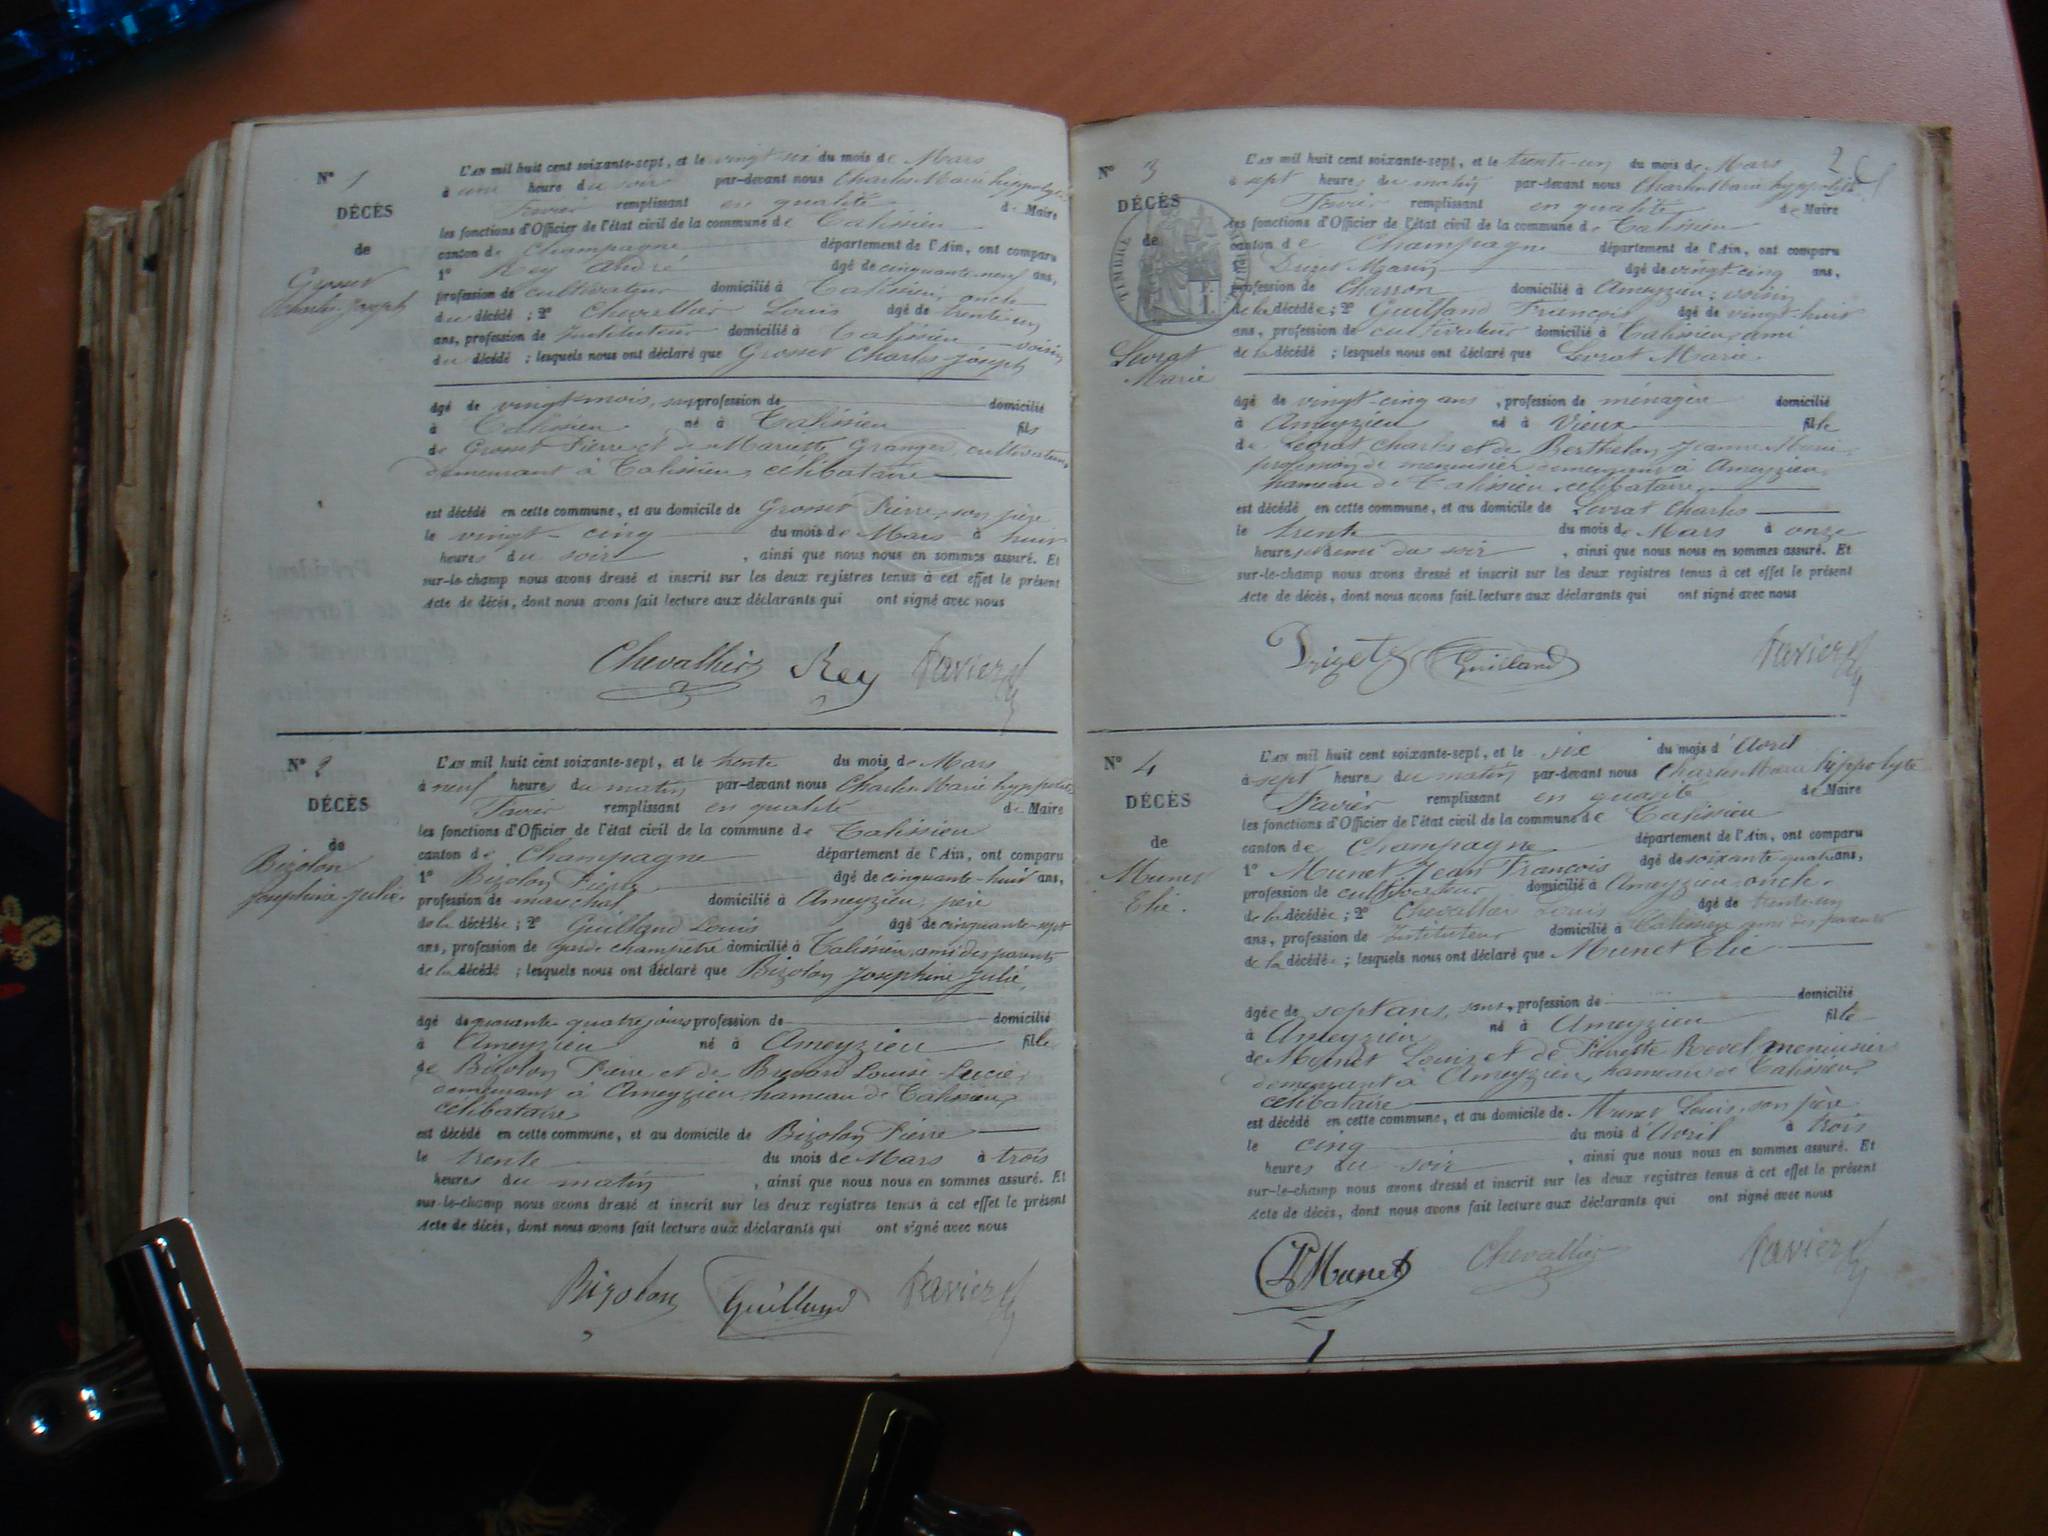 N° 1
DÉCÈS
de
Grosset
Charles Joseph
L'AN mil huit cent soixante-sept, et le vingt six du mois de Mars
à une heure du soir par-devant nous Charles Marie hyppolyte
Favier remplissant en qualité de Maire
les fonctions d'Officier de l'état civil de la commune de Talissieu
canton de Champagne département de l'Ain, ont comparu
1° Rey André âgé de cinquante-neuf ans,
profession de cultivateur domicilié à Talissieu, oncle
du décédé ; 2° Chevallier Louis âgé de trente-un
ans, profession de Instituteur domicilié à Talissieu voisin
du décédé ; lesquels nous ont déclaré que Grosset Charles Joseph
âgé de vingt mois, sans profession de domicilié
à Talissieu né à Talissieu fils
de Grosset Pierre et de Mariette Granger, cultivateurs
demeurant à Talissieu, célibataire
est décédé en cette commune, et au domicile de Grosset Pierre, son père
le vingt-cinq du mois de Mars à huit
heures du soir , ainsi que nous nous en sommes assuré. Et
sur-le-champ nous avons dressé et inscrit sur les deux registres tenus à cet effet le présent
Acte de décès, dont nous avons fait lecture aux déclarants qui ont signé avec nous
Chevallier Rey Favier
N° 2
DÉCÈS
de
Bizolon
Joséphine Julie.
L'AN mil huit cent soixante-sept, et le trente du mois de Mars
à neuf heures du matin par-devant nous Charles Marie hyppolite
Favier remplissant en qualité de Maire
les fonctions d'Officier de l'état civil de la commune de Talissieu
canton de Champagne département de l'Ain, ont comparu
1° Bizolon Pierre âgé de cinquante-huit ans,
profession de marechal domicilié à Ameyzieu, père
de la décédé ; 2° Guilland Louis âgé de cinquante-sept
ans, profession de garde champêtre domicilié à Talissieu, ami des parents
de la décédé ; lesquels nous ont déclaré que Bizolon Joséphine Julie,
âgé de quarante-quatre jours profession de domicilié
à Ameyzieu né à Ameyzieu fille
de Bizolon Pierre et de Louise Lucie,
demeurant à Ameyzieu, hameau de Talissieu,
célibataire
est décédé en cette commune, et au domicile de Bizolon Pierre
le trente du mois de Mars à trois
heures du matin , ainsi que nous nous en sommes assuré. Et
sur-le-champ nous avons dressé et inscrit sur les deux registres tenus à cet effet le présent
Acte de décès, dont nous avons fait lecture aux déclarants qui ont signé avec nous
Bizolon Guilland Favier
2
N° 3
DÉCÈS
de
TIMBRE
1 F.
Levrat
Marie
L'AN mil huit cent soixante-sept, et le trente-un du mois de Mars
à sept heures du matin par-devant nous Charles Marie hyppolite
Favier remplissant en qualité de Maire
les fonctions d'Officier de l'état civil de la commune de Talissieu
canton de Champagne département de l'Ain, ont comparu
Marin âgé de vingt-cinq ans,
profession de Charron domicilié à Ameyzieu, voisin
de la décédée ; 2° Guilland François âgé de vingt-huit
ans, profession de cultivateur domicilié à Talissieu, ami
de la décédé ; lesquels nous ont déclaré que Levrat Marie.
âgé de vingt-cinq ans , profession de ménagère domicilié
à Ameyzieu né à Vieux fille
de Levrat Charles et de Berthelon Jeanne Marie
profession de menuisier demeurant à Ameyzieu,
hameau de Talissieu, célibataire
est décédé en cette commune, et au domicile de Levrat Charles
le trente du mois de Mars à onze
heures et demi du soir , ainsi que nous nous en sommes assuré. Et
sur-le-champ nous avons dressé et inscrit sur les deux registres tenus à cet effet le présent
Acte de décès, dont nous avons fait lecture aux déclarants qui ont signé avec nous
Guilland Favier
N° 4
DÉCÈS
de
Munet
Elie.
L'AN mil huit cent soixante-sept, et le six du mois d'Avril
à sept heures du matin par-devant nous Charles Marie hippolyte
Favier remplissant en qualité de Maire
les fonctions d'Officier de l'état civil de la commune de Talissieu
canton de Champagne département de l'Ain, ont comparu
1° Munet Jean François âgé de soixante-quatre ans,
profession de cultivateur domicilié à Ameyzieu oncle
de la décédée ; 2° Chevallier Louis âgé de trente-un
ans, profession de Instituteur domicilié à Talissieu ami des parents
de la décédée ; lesquels nous ont déclaré que Munet Elie
âgée de sept ans, sans profession de domicilié
à Ameyzieu né à Ameyzieu fille
de Munet Louis et de Pierrette Revel menuisier
demeurant à Ameyzieu, hameau de Talissieu,
célibataire
est décédé en cette commune, et au domicile de Munet Louis, son père
le cinq du mois d'Avril à trois
heures du soir , ainsi que nous nous en sommes assuré. Et
sur-le-champ nous avons dressé et inscrit sur les deux registres tenus à cet effet le présent
Acte de décès, dont nous avons fait lecture aux déclarants qui ont signé avec nous
Munet Chevallier Favier